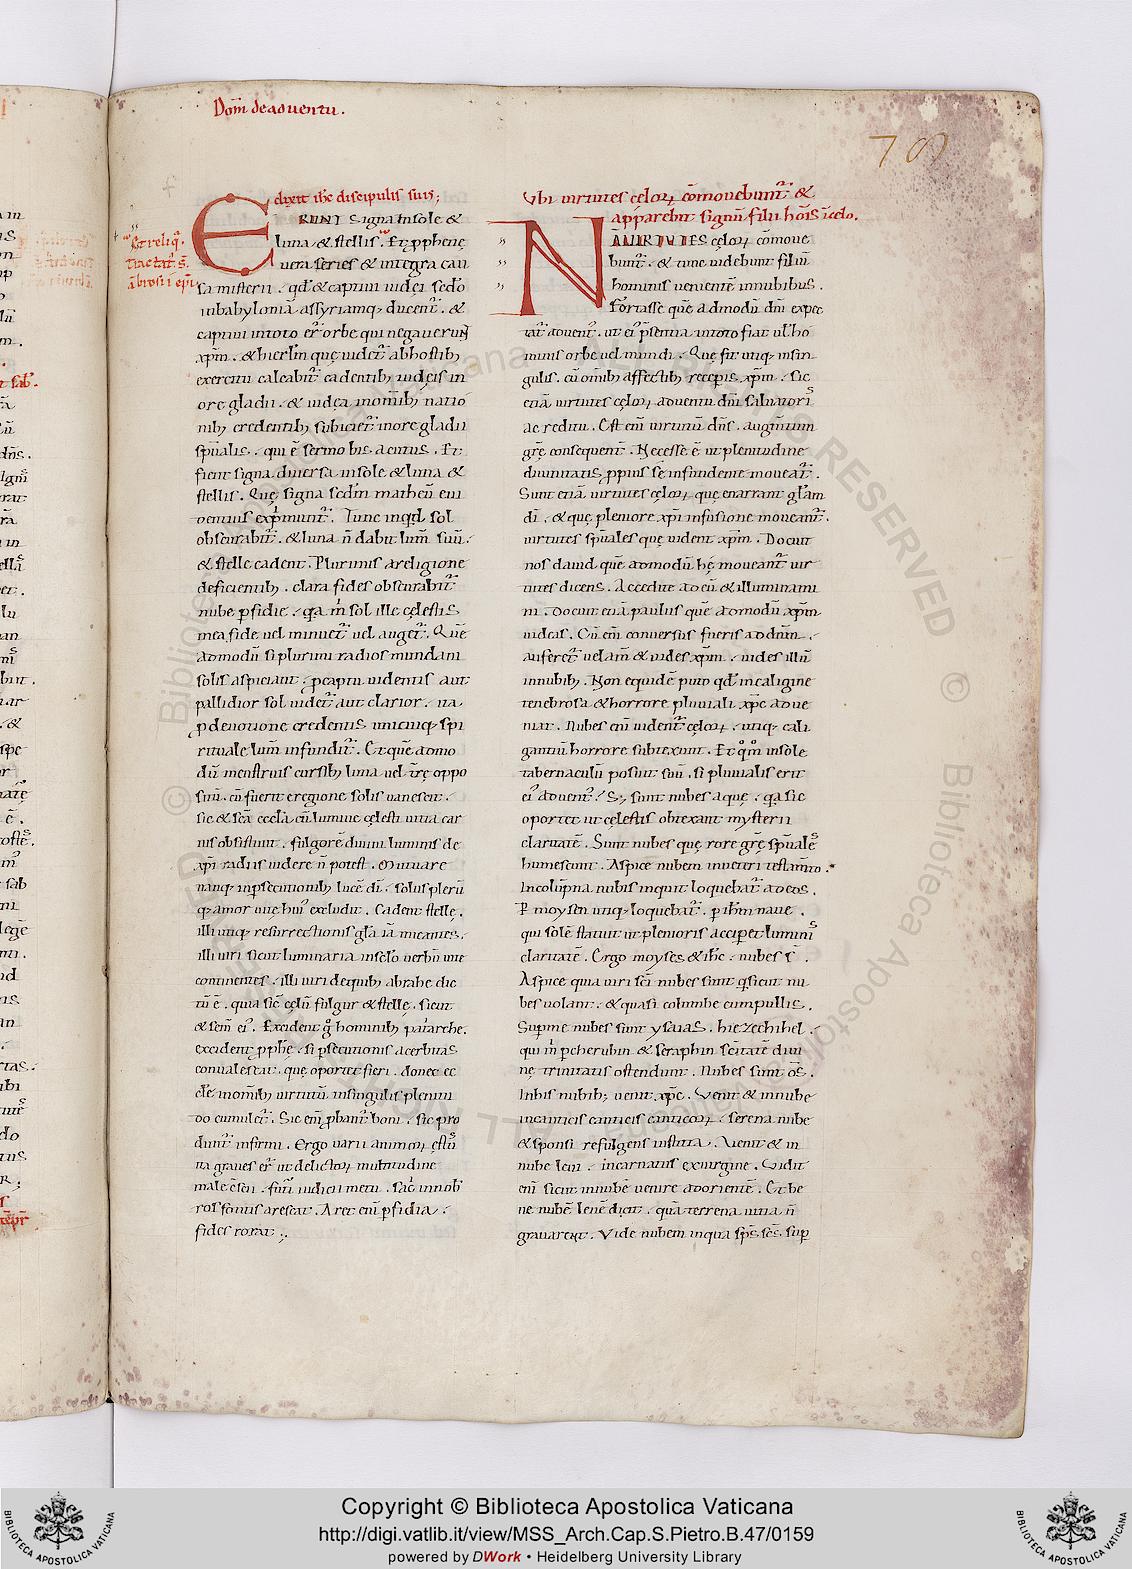 Dom̄ de aduentu.
dixit ih̄c discipulis suis;
ERUNT signa in sole &
luna & stellis. Et ꝓpheticę
uera series & integra cau
sa misterii. qd̄ & captiui iudęi scd̄o
in babyloniā assyriamq; ducent̄. &
captiui in toto er̄ orbe qui negauerunt
xp̄m. & hierl̄m quę uidet̄ ab hostib;
exercitu calcabit̄ cadentib; iudęis in
ore gladii. & iudęa in om̄ib; natio
nib; credentib; subiciet̄ in ore gladii
sp̄ualis. qui ē sermo bis acutus. Et
fient signa diuersa in sole & luna &
stellis. Quę signa sedm matheū eui
dentius exp̄munt̄. Tunc inqd sol
obscurabit̄. & luna n̄ dabit lum̄ suū.
& stelle cadent. Plurimis a religione
deficientib;. clara fides obscurabit̄
nube ꝑfidie. qa m̄ sol ille cęlestis
mea fide uel minuet̄ uel auget̄. Quē
admodū si plurimi radios mundani
solis aspiciant. ꝓ captu uidentis aut
pallidior sol uidet̄ aut clarior. ita
ꝓ deuotione credentis unicuiq; spi
rituale lum̄ infundit̄. Et quē admo
dū menstruis cursib; luna uel t̄rę oppo
situ. cū fuerit e regione solis uanescit.
sic & sc̄a eccl̄a cū lumine cęlesti uitia car
nis obsistunt. fulgorē diuini luminis de
xp̄i radiis uidere n̄ potest.
nanq; in ꝑsecutionib; lucē dī. solus plerū
q; amor uitę hui᾿ excludit. Cadent stellę.
illi uiri sicut luminaria in sc̄lo uerbū uite
continentes. illi uiri de quib; abrahe dic
tū ē. quia sic̄ cęlū fulgur & stellę. sicut
& sem̄ ei᾿. Excident g̊ hominib; pat̄arche.
excident ꝓph̄ę. si ꝑsecutionis acerbitas
conualescat. quę oportet fieri. donec ec
cl̄e in om̄ib; uirtutū in singulis plenitu
do cumulet̄. Sic eni ꝓbant̄ boni. sic pro
dunt̄ infirmi. Ergo uarii animoꝝ ęstus
ita graues er̄ ut delictoꝝ multitudine
fut̄i iudicii metu. sac̄i in nob
ros fontis arescat. Aret eni ꝑfidia.
fides rorat;
& reliq̄.
Tractat̄ s̄.
ābrosii ep̄i
Ubi uirtutes cęloꝝ cōmouebunt̄ &
apparebit signū filii hōis ī cęlo.
NĀ UIRTUTES cęloꝝ cōmoue
bunt̄. & tunc uidebunt filiū
hominis uenientē in nubibus.
Fortasse quē admodū dn̄i expec
tat̄ aduent̄. ut ei᾿ p̄sentia in toto fiat ul̄ ho
minis orbe uel mundi. Quę fit utiq; in sin
gulis. cū om̄ib; affectib; recep̄is xp̄m. sic
etiā uirtutes cęloꝝ aduentu dn̄i saluatoris
ac reditu. Est eni uirtutū dn̄s. augmtum
gr̄ę consequent̄. Necesse ē ut plenitudine
diuinitatis ꝓpius sē infundente moueat̄.
Sunt etiā uirtutes cęloꝝ quę enarrant gl̄am
dī. & quę pleniore xp̄i infusione moueant̄.
uirtutes sp̄uales quę uident xp̄m. Docuit
nos dauid quē admodū hę moueant̄ uir
tutes dicens. Accedite ad eū & illuminami
ni. Docuit etiā paulus quē admodū xp̄m
uideas. Cū eni conuersus fueris ad dn̄m.
auferet̄ uelam̄ & uides xp̄m. uides illū
in nubib;. Non equidē puto qd̄ in caligine
tenebrosa & horrore pluuiali xp̄c adue
niat. Nubes eni uident̄ cęloꝝ. utiq; cali
gantiū horrore subtexunt. Et qm̊ in sole
tabernaculū posuit suū. si pluuialis erit
ei᾿ aduent̄? Sȝ sunt nubes aquę. qa sic
oportet ut cęlestis obtexant mysterii
claritatē. Sunt nubes quę rore gr̄ę sp̄uales
humescunt. Aspice nubem in ueteri testam̄to.
In colūpna nubis inquit loquebat̄ ad eos.
Ꝑ moysen utiq; loquebat̄. ꝑ ih̄m naue.
qui solē statuit ut plenioris acciperet luminis
claritatē. Ergo moyses & ih̄c. nubes s̄.
Aspice quia uiri sc̄i nubes sunt q̄ sicut nu
bes uolant. & quasi columbe cum pullis.
Suꝑ me nubes sunt ysaias. hiezechihel.
qui m̄ ꝑ cherubin & seraphin sc̄itatē diui
nę trinitatis ostendunt. Nubes sunt om̄s.
In his nubib; uenit xp̄c. Uenit & in nube
in canticis canticoꝝ. serena nube
& sponsi refulgens iustitia. Uenit & in
nube leui. incarnatus ex uirgine. Uidit
eni sicut in nubē uenire ad orientē. Et be
ne nubē leuē dicit. quā terrena uitia n̄
grauarent. Vide nubem in qua sp̄s sc̄s sup
Copyright © Biblioteca Apostolica Vaticana
http://digi.vatlib.it/view/MSS_Arch.Cap.S.Pietro.B.47/0159
powered by DWork • Heidelberg University Library